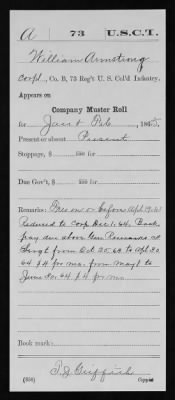 A 73 U.S.C.T.
William Armstrong
Corpl., Co. B, 73 Reg't U. S. Col'd Infantry.
Appears on
Company Muster Roll
for Jan & Feb, 1865.
Present or absent Present
Stoppage, $ 100 for
Due Gov't, $ 100 for
Remarks: Free on or before Apl 19. 61
Reduced to Corp Dec 1. 64. Back
pay due above
from Oct 20. 63 to Apl 30
64 $4 pr mo. from May 1 to
June 30. 64 $4 pr mo.
Book mark:
(858) Copyist.